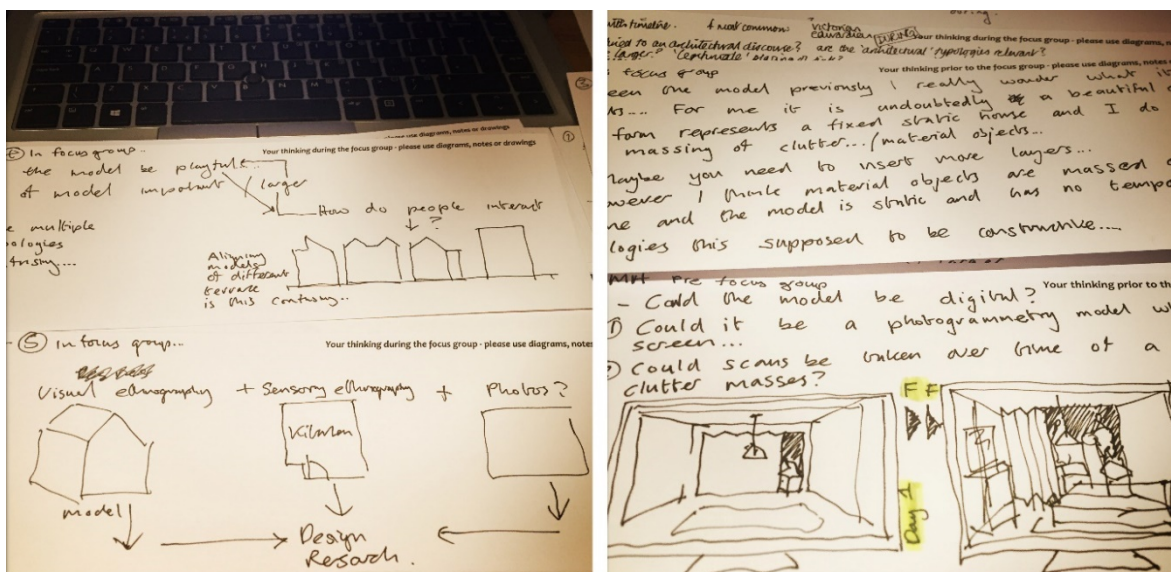 Your thinking during the focus group - please use diagrams, notes or drawings
In focus group...
the model be playful &
of model important / larger
How do people interact
?
multiple
ologies
Aligning
models
of different
terrace
is this confusing..
5 In focus group...
Your thinking during the focus group - please use diagrams, notes
Visual ethnography + Sensory ethnography + Photos?
Kitchen
model
Design
Research.
with timeline. most common: victorian
edwardian DURING
Your thinking during the focus group - please use diagrams,
to an architectural discourse? are the 'architectural' typologies relevant?
larger?
focus group
Your thinking prior to the focus group - please use diagrams, notes
een the model previously I really wonder what it
For me it is undoubtedly a beautiful
form represents a fixed static house and I do
massing of clutter.../material objects...
Maybe you need to insert more layers...
owever I think material objects are massed
me and the model is static and has no tempo
logies this supposed to be constructive....
Pre focus group
Your thinking prior to th
- Could the model be digital?
1 Could it be a photogrammetry model w
screen...
Could scans be taken over time of a
clutter masses?
F F
Day 1